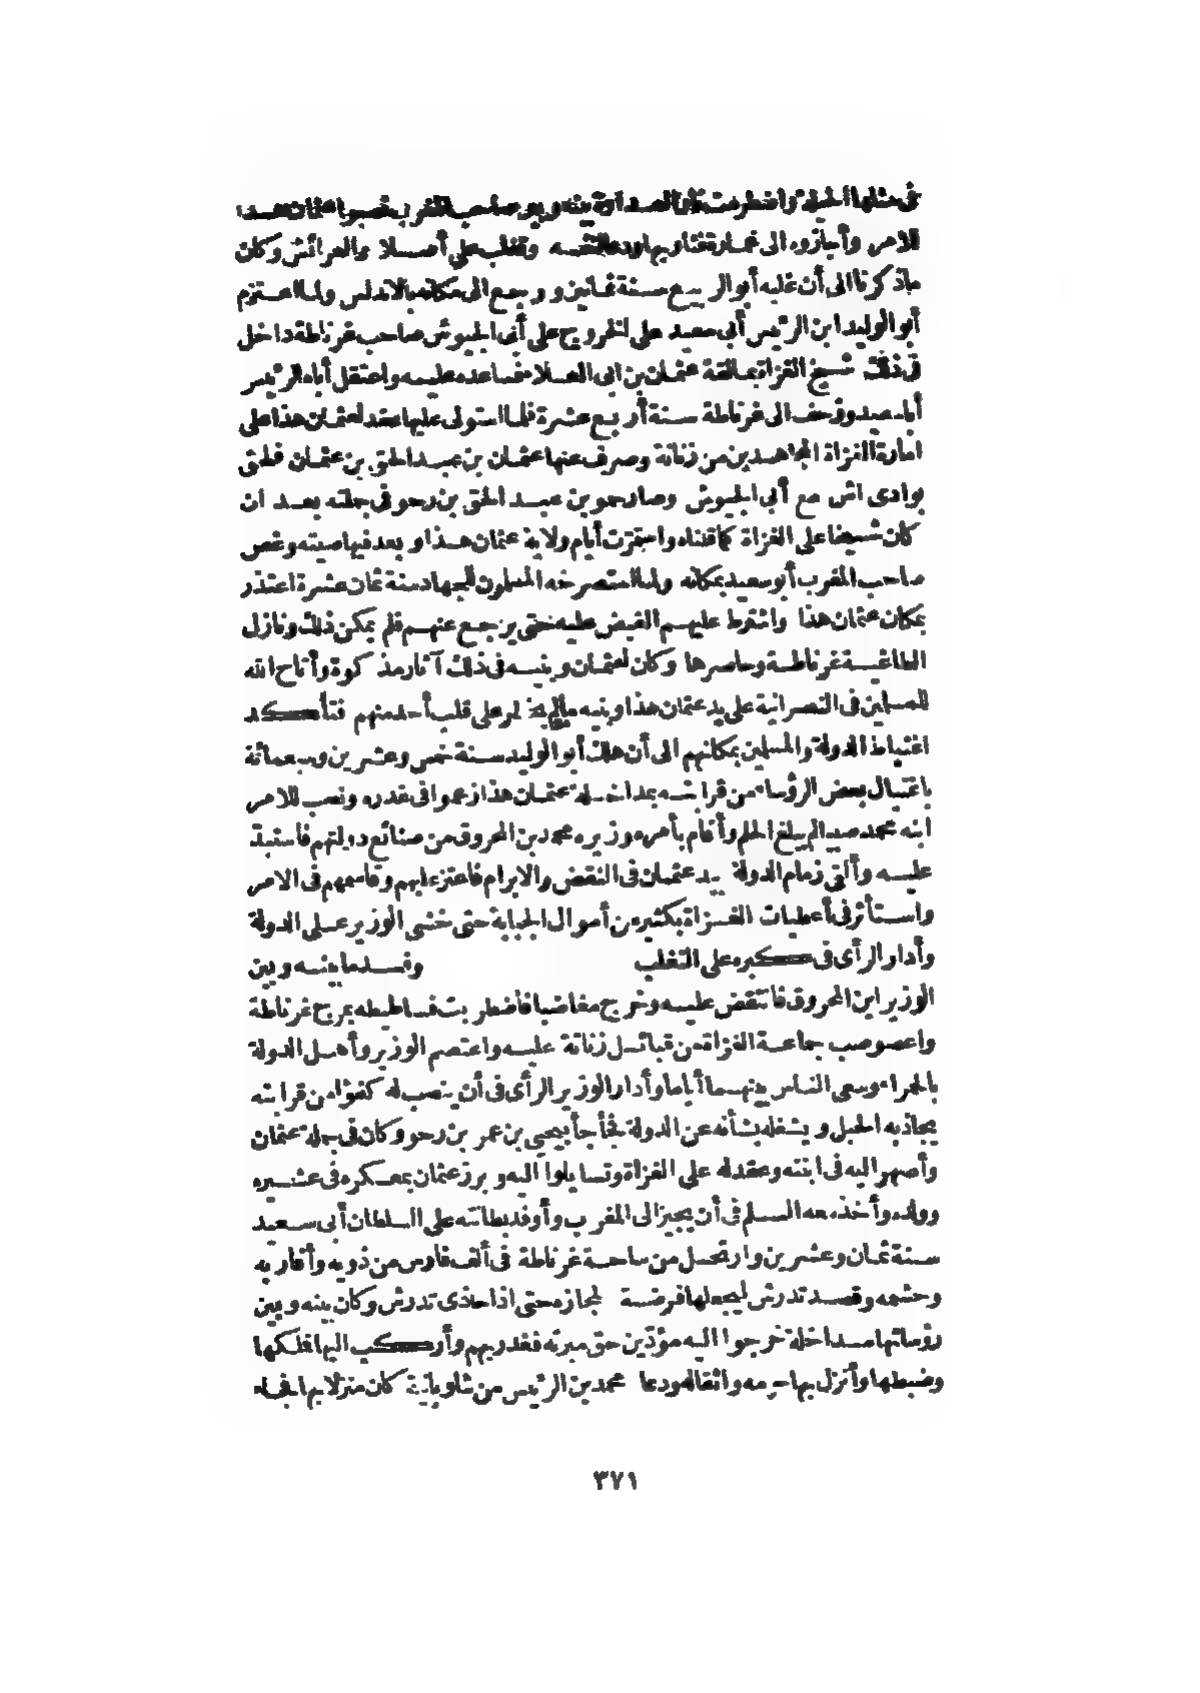 فى مثلها الحيلة واضطرمت نار العداوة بينه وبين صاحب المغرب فنصبوا عثمان هذا
للامر وأجازوه الى غمارة فثار بها ودعا لنفسه وتغلب على أصيلا والعرائش وكان
ماذكرناه الى أن غلبه أبو الربيع سنة ثمانين و ورجع الى مكانه بالاندلس ولما اعتزم
أبو الوليد ابن الرئيس أبى سعيد على الخروج على أبى الجيوش صاحب غرناطة داخل
فى ذلك شيخ الغزاة بمالقة عثمان بن ابى العلا فساعده عليه واعتقل أباه الرئيس
أبا سعيد وزحف الى غرناطة سنة أربع عشرة فلما استولى عليها عقد لعثمان هذا على
امارة الغزاة المجاهدين من زناتة وصرف عنها عثمان بن عبد الحق بن عثمان فلحق
بوادى اش مع أبى الجيوش وصار حمو بن عبد الحق بن رحو فى جملته بعد ان
كان شيخا على الغزاة كما قلناه واستمرت أيام ولاية عثمان هذا و بعد فيها صيته وغص
صاحب المغرب أبو سعيد بمكانه ولما استصرخه المسلمون للجهاد سنة ثمان عشرة اعتذر
بمكان عثمان هذا واشترط عليهم القبض عليه حتى يرجع عنهم فلم يمكن ذلك ونازل
الطاغية غرناطة وحاصرها وكان لعثمان وبنيه فى ذلك آثار مذكورة وأتاح الله
للمسلمين فى النصرانية على يد عثمان هذا وبنيه مالم يخطر على قلب أحد منهم فتأكد
اغتباط الدولة والمسلمين بمكانهم الى أن هلك أبو الوليد سنة خمس وعشرين وسبعمائة
باغتيال بعض الرؤساء من قرابته بمداخلة عثمان هذا زعموا فى غدره ونصب للامر
ابنه محمد صبيا لم يبلغ الحلم وأقام بأمره وزيره محمد بن المحروق من صنائع دولتهم فاستبد
عليه وألقى زمام الدولة بيد عثمان فى النقض والابرام فاعتز عليهم وقاسمهم فى الامر
واستأثر فى أعطيات الغزاة بكثير من أموال الجباية حتى خشى الوزير على الدولة
وأدار الرأى فى كبره على التغلب وفسد ما بينه وبين
الوزير ابن المحروق فانتقض عليه وخرج مغاضبا فاضطربت فساطيطه بمرج غرناطة
واعصوصب جماعة الغزاة من قبائل زناتة عليه واعتصم الوزير وأهل الدولة
بالحمراء وسعى الناس بينهما أياما وأدار الوزير الرأى فى أن ينصب له كفؤا من قرابته
يجاذبه الحبل ويشغله بشأنه عن الدولة فجأجأ بيحيى بن عمر بن رحو وكان فى جملة عثمان
وأصهر اليه فى ابنته وعقد له على الغزاة وتسايلوا اليه وبرز عثمان بمعسكره فى عشيره
وولده وأخذ معه السلم فى أن يجيز الى المغرب وأوفد بطانته على السلطان أبى سعيد
سنة ثمان وعشرين وارتحل من ساحة غرناطة فى ألف فارس من ذويه وأقاربه
وحشمه وقصد تدرش ليجعلها فرضة لمجازه حتى اذا حاذى تدرش وكان بينه وبين
رؤسائها مداخلة خرجوا اليه مؤدّين حق مبرته فغدر بهم وأركب اليها فملكها
وضبطها وأنزل بها حرمه وأثقاله ودعا محمد بن الرئيس من شلوبانية كان منزلا بها فجاء
٣٧١